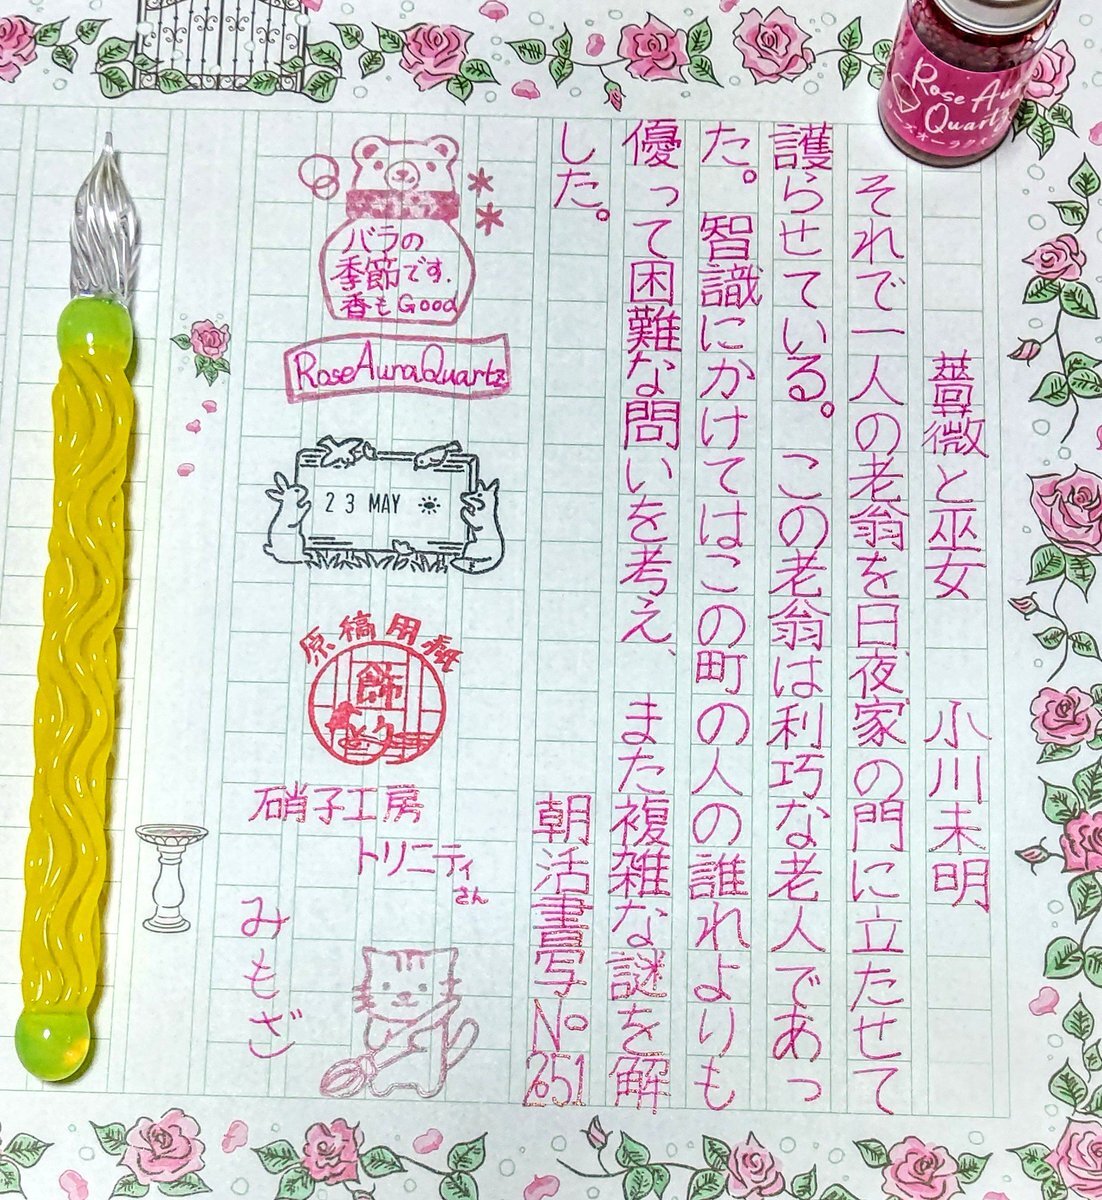 薔薇と巫女　小川未明
それで一人の老翁を日夜家の門に立たせて
護らせている。この老翁は利巧な老人であっ
た。智識にかけてはこの町の人の誰れよりも
優って困難な問いを考え、また複雑な謎を解
した。
朝活書写No251
バラの
季節です.
香もGood
RoseAuraQuartz
23 MAY
原稿用紙
飾
硝子工房
トリニティ
さん
みもざ
Rose Aura
Quartz